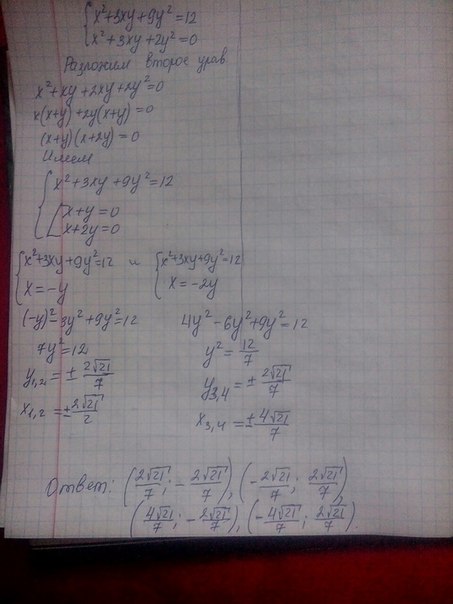 { x²+3xy+9y²=12
{ x²+3xy+2y²=0
Разложим второе урав.
x²+xy+2xy+2y²=0
x(x+y)+2y(x+y)=0
(x+y)(x+2y)=0
Имеем
{ x²+3xy+9y²=12
{ [ x+y=0
[ x+2y=0
{ x²+3xy+9y²=12 и { x²+3xy+9y²=12
{ x=-y { x=-2y
(-y)²-3y²+9y²=12 4y²-6y²+9y²=12
7y²=12 y²=12/7
y₁,₂=±2√21/7 y₃,₄=±2√21/7
x₁,₂=±2√21/2 x₃,₄=±4√21/7
Ответ: (2√21/7; -2√21/7), (-2√21/7; 2√21/7),
(4√21/7; -2√21/7), (-4√21/7; 2√21/7).